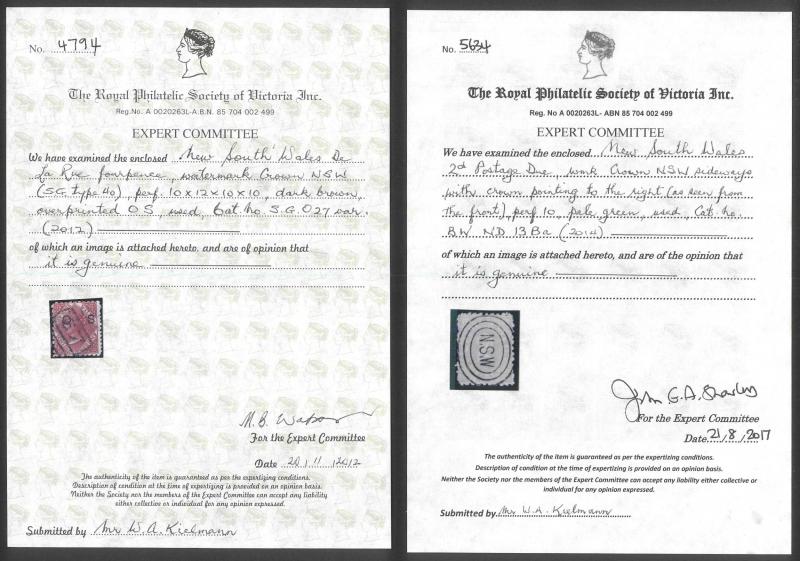 No. 4794
The Royal Philatelic Society of Victoria Inc.
Reg.No. A 0020263L-A.B.N. 85 704 002 499
EXPERT COMMITTEE
We have examined the enclosed New South Wales De
La Rue fourpence, watermark Crown NSW
(SG type 40), perf. 10x12x10x10, dark brown,
overprinted OS, used, Cat. no. S.G. O27 var.
(2012)
of which an image is attached hereto, and are of opinion that
it is genuine
O S
M. B. Watson
For the Expert Committee
Date 20/11/2012
The authenticity of the item is guaranteed as per the expertizing conditions.
Description of condition at the time of expertizing is provided on an opinion basis.
Neither the Society nor the members of the Expert Committee can accept any liability
either collective or individual for any opinion expressed.
Submitted by Mr W. A. Kielmann
No. 5634
The Royal Philatelic Society of Victoria Inc.
Reg. No A 0020263L- ABN 85 704 002 499
EXPERT COMMITTEE
We have examined the enclosed New South Wales
2d Postage Due, wmk Crown NSW sideways
with crown pointing to the right (as seen from
the front), perf 10, pale green, used, Cat. no.
BW ND 13Ba (2014)
of which an image is attached hereto, and are of the opinion that
it is genuine
NSW
John G.A.
For the Expert Committee
Date 21/8/2017
The authenticity of the item is guaranteed as per the expertizing conditions.
Description of condition at the time of expertizing is provided on an opinion basis.
Neither the Society nor the members of the Expert Committee can accept any liability either collective or
individual for any opinion expressed.
Submitted by Mr W.A. Kielmann